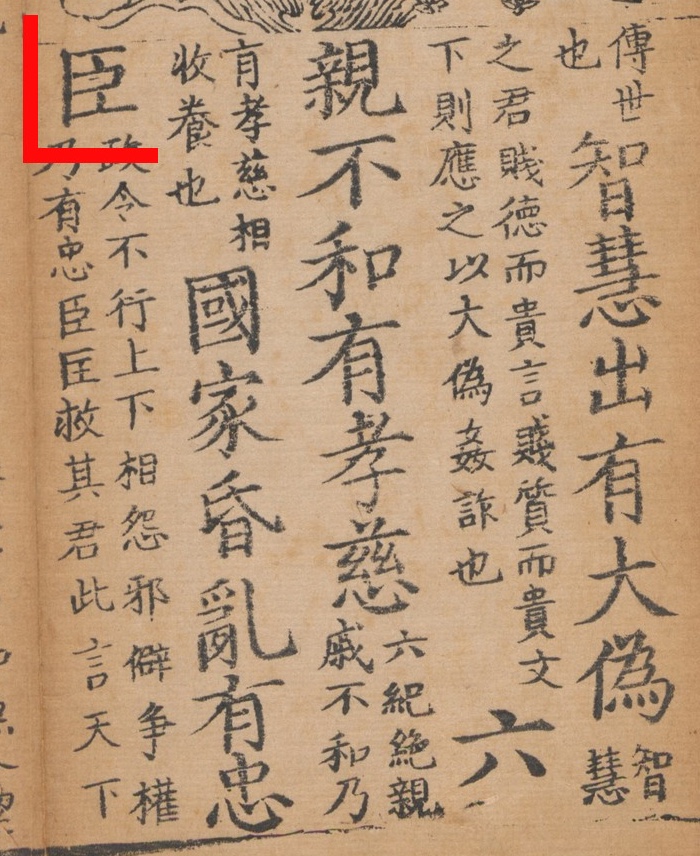 傳世
也
智慧出有大偽
智慧
之君賤德而貴言賤質而貴文
下則應之以大偽姦詐也
六
親不和有孝慈
六紀絶親
戚不和乃
有孝慈相
收養也
國家昏亂有忠
臣
政令不行上下相怨邪僻争權
乃有忠臣匡救其君此言天下